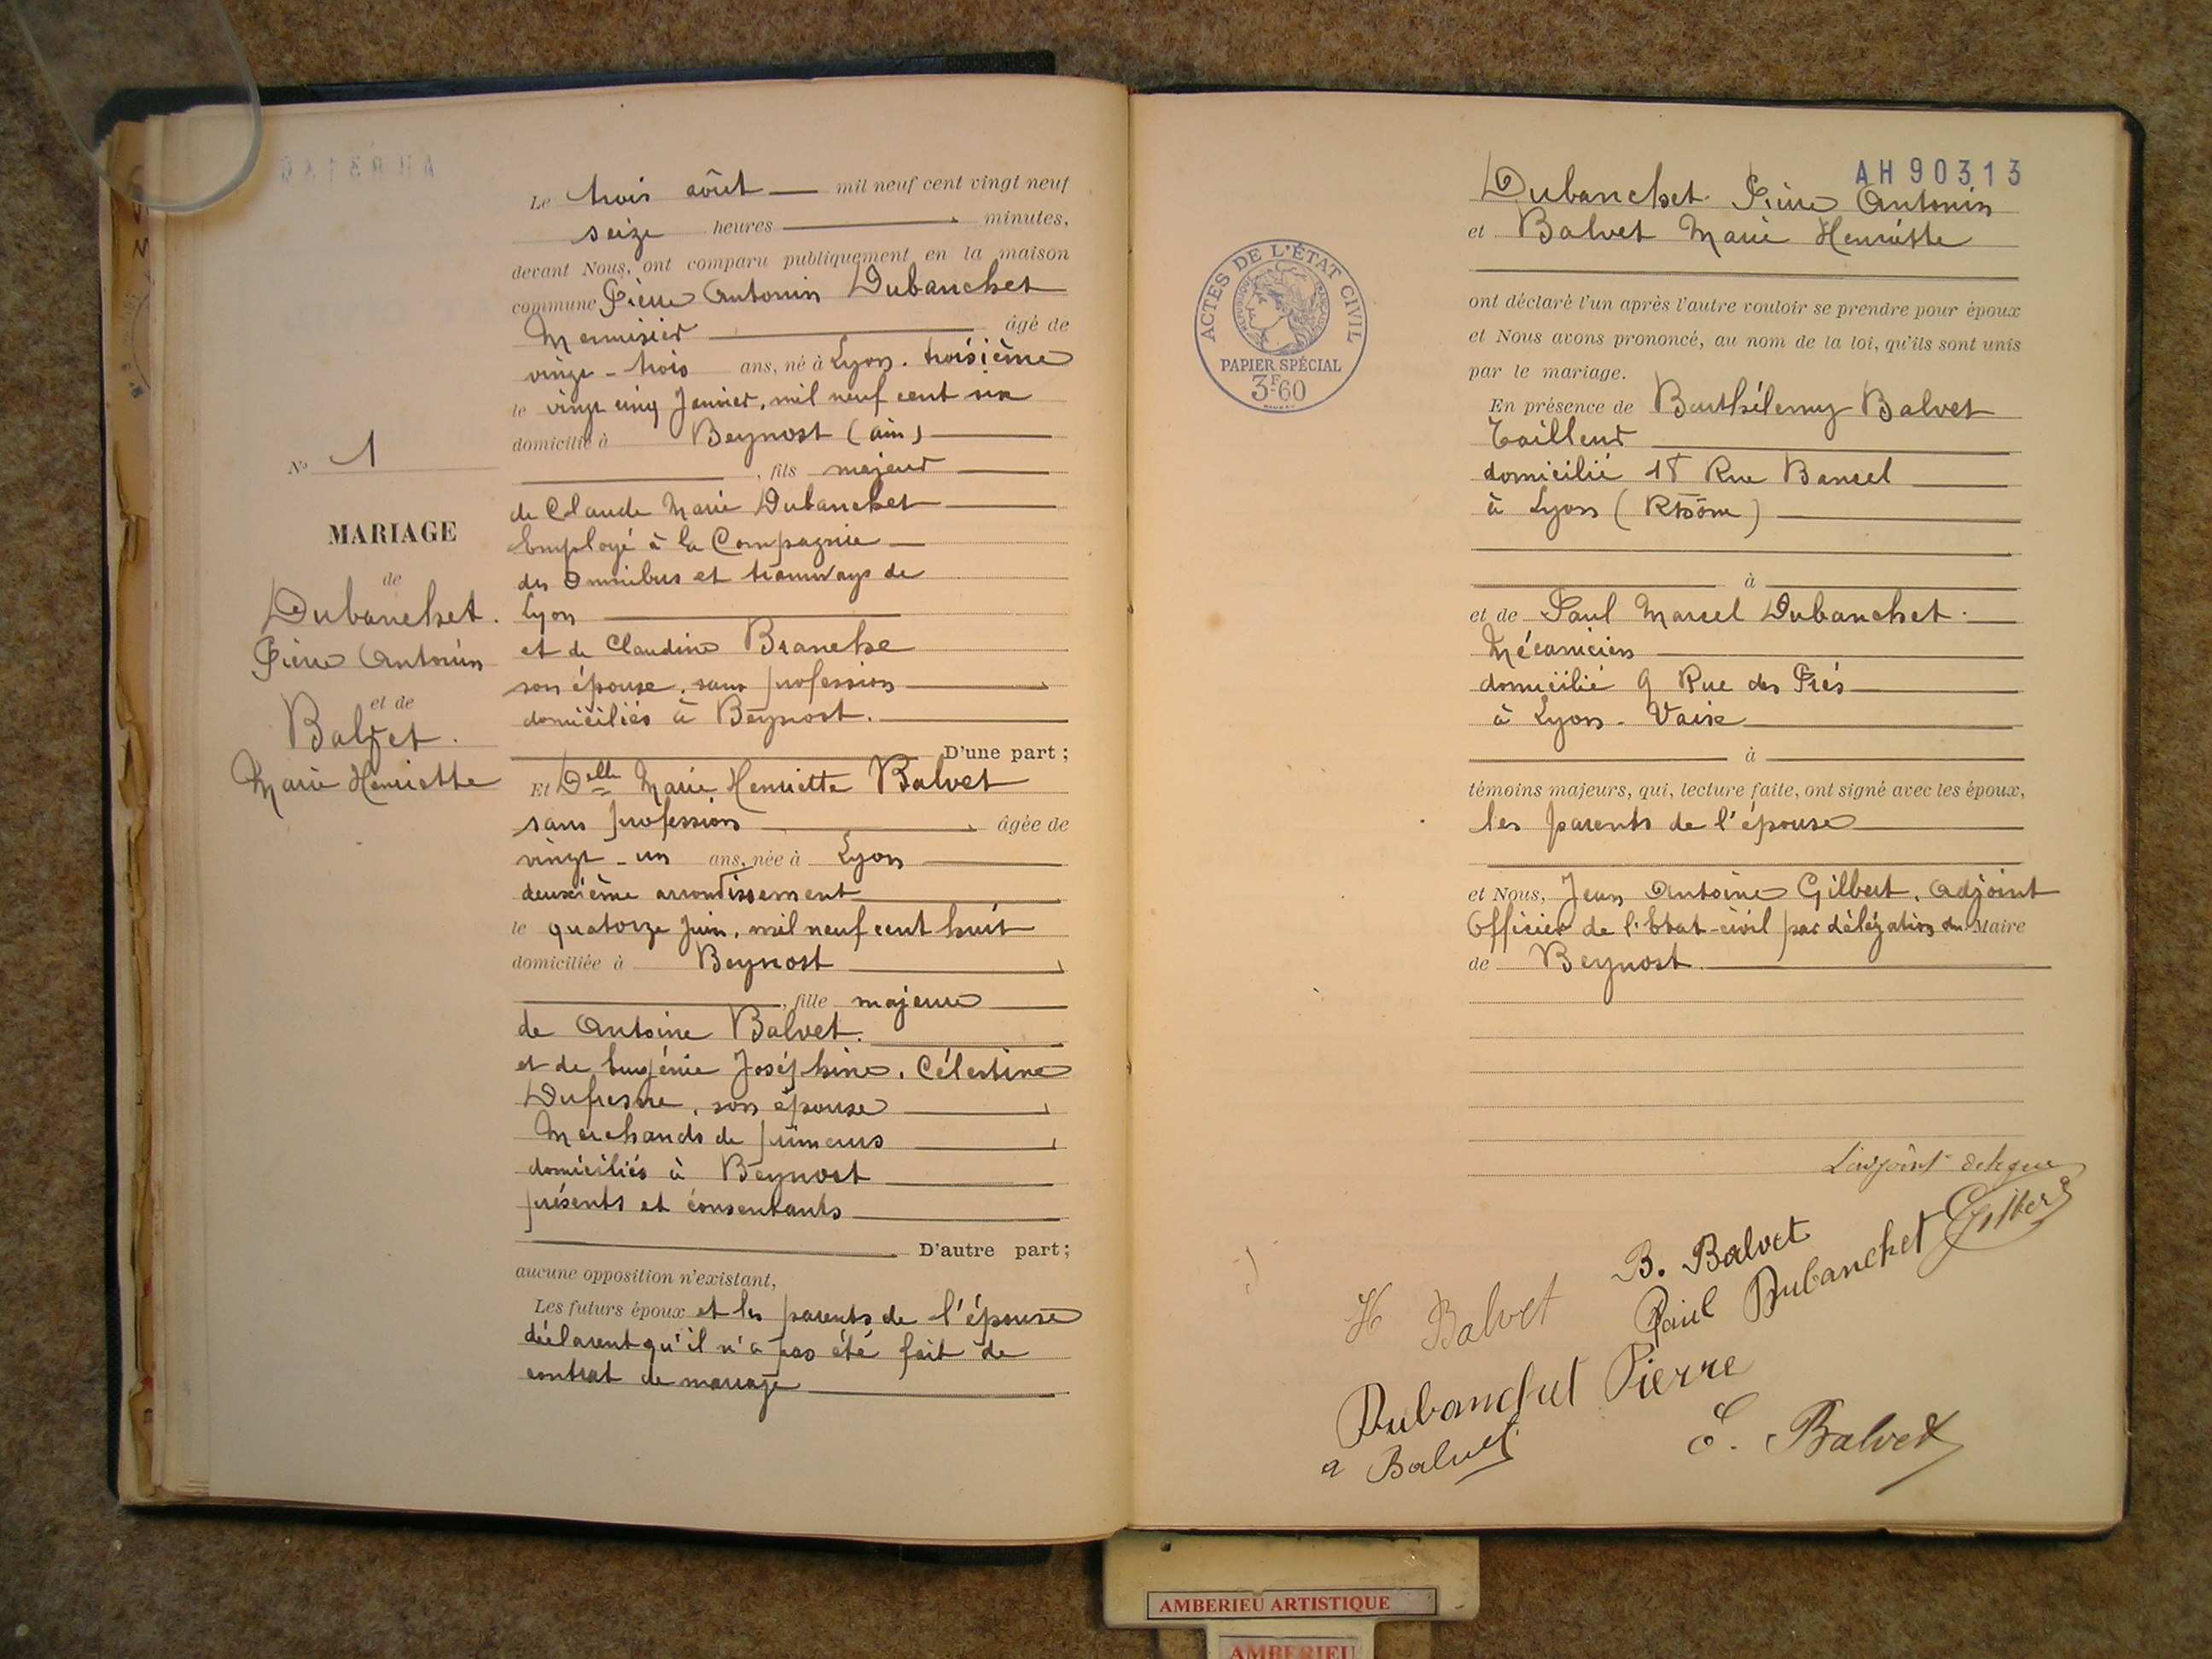 Le trois août mil neuf cent vingt neuf
seize heures minutes,
devant Nous, ont comparu publiquement en la maison
commune Pierre Antonin Dubanchet
Menuisier âgé de
vingt-trois ans, né à Lyon. troisième
le vingt cinq Janvier, mil neuf cent six
domicilié à Beynost (ain)
, fils majeur
de Claude Marie Dubanchet
Employé à la Compagnie
des Omnibus et tramways de
Lyon
et de Claudine Branche
son épouse, sans profession
domiciliés à Beynost.
D'une part;
Et Delle Marie Henriette Balvet
sans profession âgée de
vingt-un ans, née à Lyon
deuxième arrondissement
le quatorze Juin, mil neuf cent huit
domiciliée à Beynost
, fille majeure
de Antoine Balvet.
et de Eugénie Joséphine, Célestine
Dufresne, son épouse
Marchands de primeurs
domiciliés à Beynost
présents et consentants
D'autre part;
aucune opposition n'existant,
Les futurs époux et les parents de l'épouse
déclarent qu'il n'a pas été fait de
contrat de mariage
No 1
MARIAGE
de
Dubanchet.
Pierre Antonin
et de
Balvet.
Marie Henriette
AH 90313
Dubanchet Pierre Antonin
et Balvet Marie Henriette
ACTES DE L'ÉTAT CIVIL
RÉPUBLIQUE FRANÇAISE
PAPIER SPÉCIAL
3F60
ont déclaré l'un après l'autre vouloir se prendre pour époux
et Nous avons prononcé, au nom de la loi, qu'ils sont unis
par le mariage.
En présence de Barthélemy Balvet
Tailleur
domicilié 18 Rue Bancel
à Lyon (Rhône)
à
et de Paul Marcel Dubanchet.
Mécanicien
domicilié 9 Rue des Prés
à Lyon-Vaise
à
témoins majeurs, qui, lecture faite, ont signé avec les époux,
les parents de l'épouse
et Nous, Jean Antoine Gilbert, adjoint
Officier de l'Etat-civil par délégation du Maire
de Beynost.
L'adjoint delegue
Gilbert
B. Balvet
Paul Dubanchet
H Balvet
Dubanchet Pierre
a Balvet
E. Balvet
AMBERIEU ARTISTIQUE
AMBERIEU